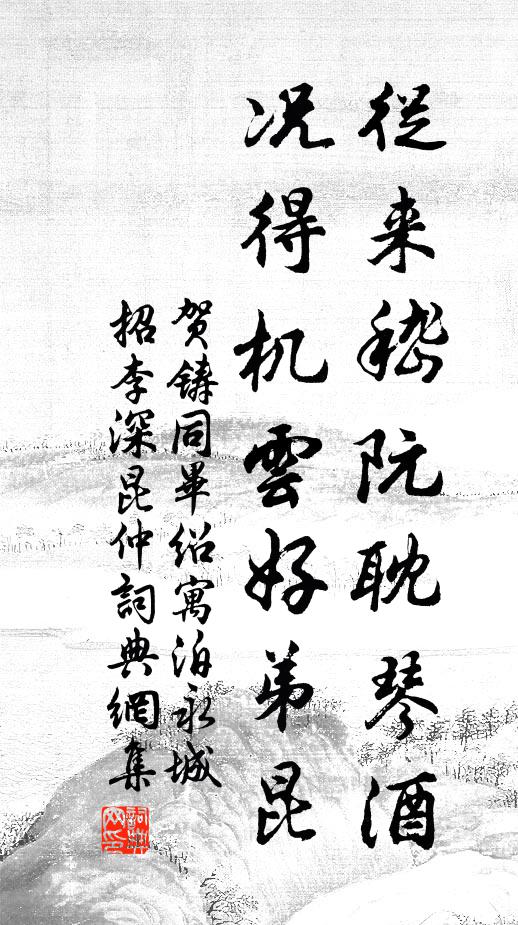 從来嵇阮耽琴酒
况得机雲好弟昆
贺鑄同畢绍寓泊永城
招李深昆仲詞典網集